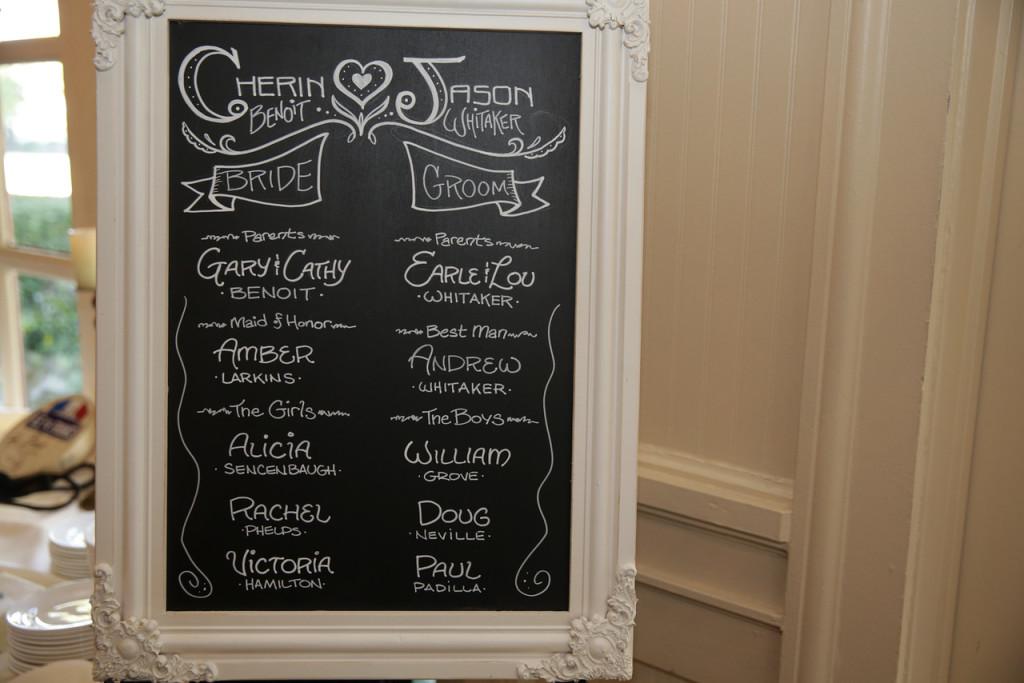 CHERIN JASON
BENOIT WHITAKER
BRIDE GROOM
Parents Parents
GARY & CATHY EARLE & LOU
BENOIT WHITAKER
Maid of Honor Best Man
AMBER ANDREW
LARKINS WHITAKER
The Girls The Boys
ALICIA WILLIAM
SENCENBAUGH GROVE
RACHEL DOUG
PHELPS NEVILLE
VICTORIA PAUL
HAMILTON PADILLA